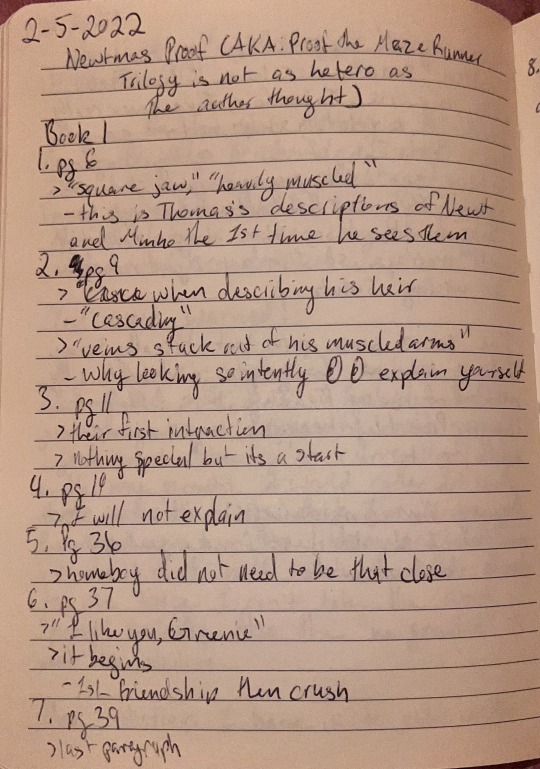 2-5-2022
Newtmas Proof (AKA: Proof the Maze Runner
Trilogy is not as hetero as
the author thought)
Book 1
1. pg 6
> "square jaw," "heavily muscled"
- this is Thomas's descriptions of Newt
and Minho the 1st time he sees them
2. pg 9
> when describing his hair
- "cascading"
> "veins stuck out of his muscled arms"
- Why looking so intently explain yourself
3. pg 11
> their first interaction
> nothing special but its a start
4. pg 19
> I will not explain
5. Pg 36
> homeboy did not need to be that close
6. pg 37
> "I like you, Greenie"
> it begins
- 1st friendship then crush
7. pg 39
> last paragraph
8.